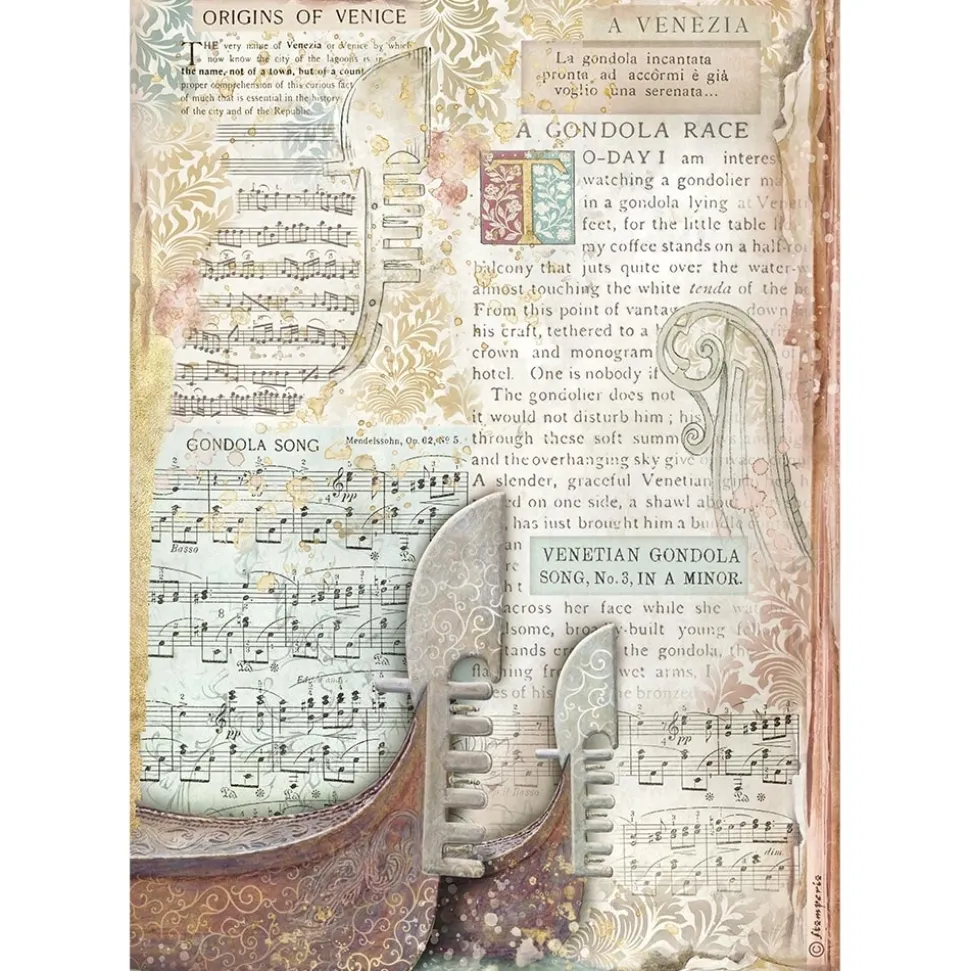 ORIGINS OF VENICE
THE very name of Venezia or Venice by which
now know the city of the lagoons is in
the name, not of a town, but of a count
proper comprehension of this curious fact
of much that is essential in the history
of the city and of the Republic.
A VENEZIA
La gondola incantata
pronta ad accormi è già
voglio una serenata...
A GONDOLA RACE
TO-DAY I am interes
watching a gondolier
in a gondola lying at
feet, for the little table
my coffee stands on a half-
balcony that juts quite over the water-
almost touching the white tenda of the
From this point of vantag down
his craft, tethered to a
crown and monogram
hotel. One is nobody if
The gondolier does not
it would not disturb him ; his
through these soft summ
and the overhanging sky give
A slender, graceful Venetian
ed on one side, a shawl
has just brought him a
an
VENETIAN GONDOLA
SONG, No. 3, IN A MINOR.
across her face while she
-built young
the gondola,
wet arms, I
of his the bronzed
GONDOLA SONG
Mendelssohn, Op. 62, Nº 5.
pp
Basso
8
pp
pp
Basso
dim.
© Stamperia